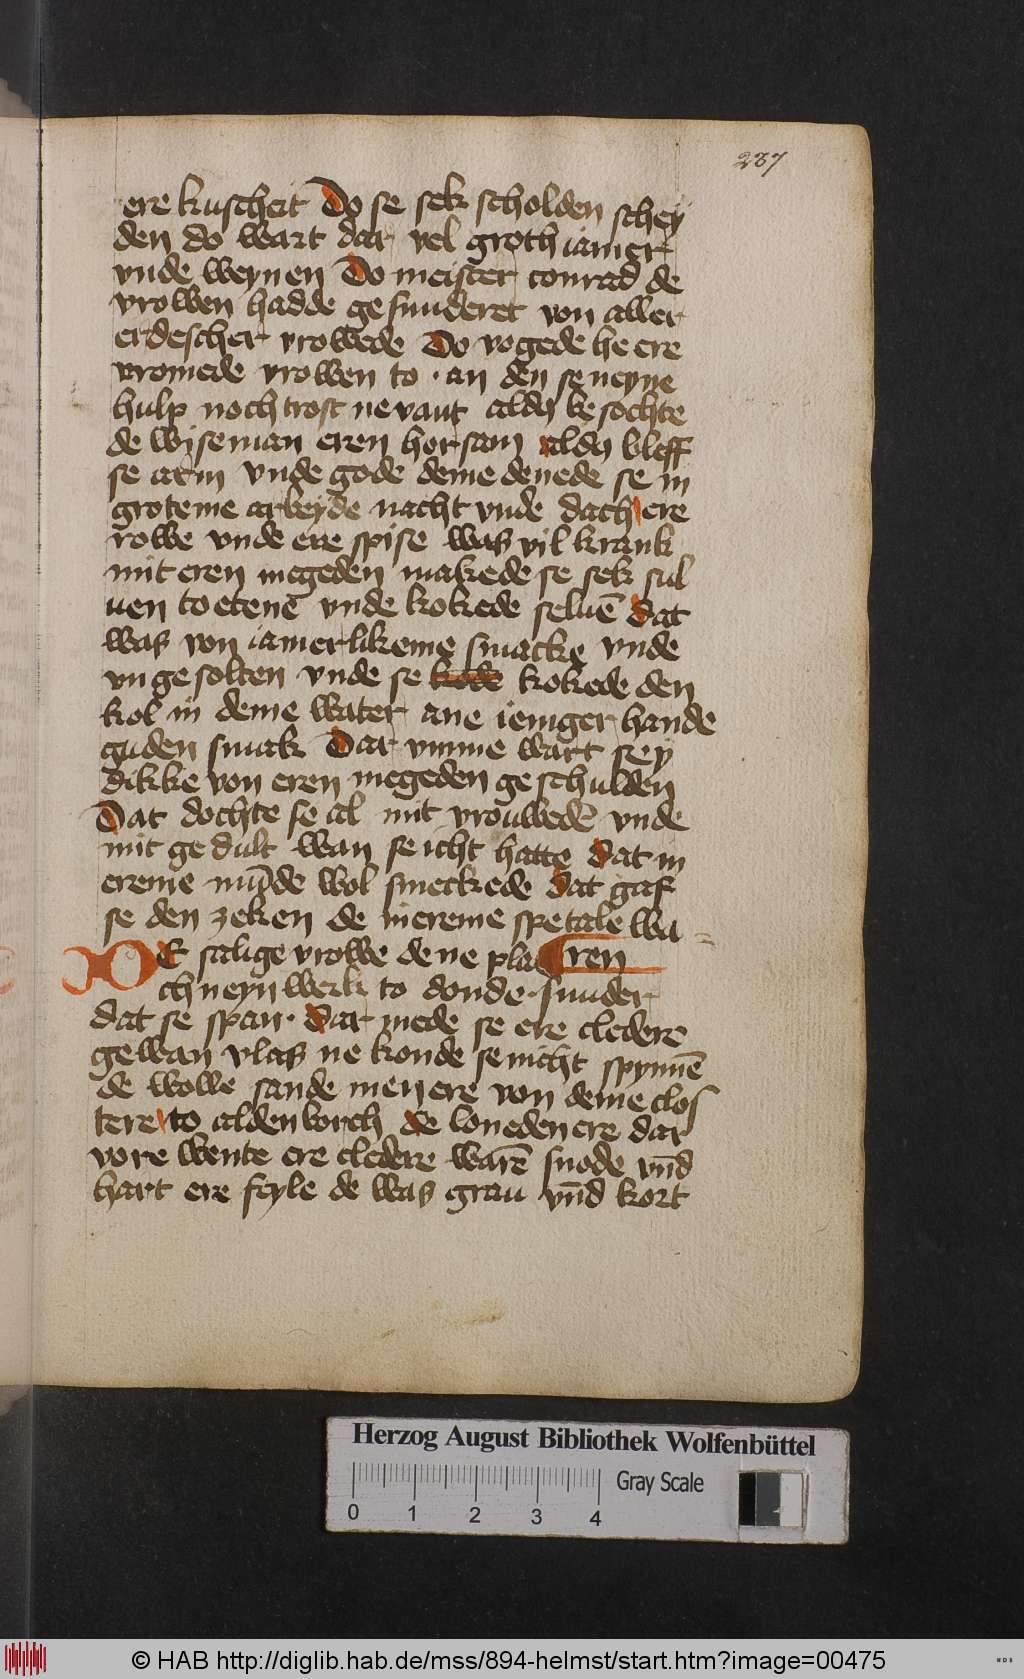 237
ere kuscheit Do se sek scholden schey
den do wart dar vel groth iamer
vnde weynen Do meister conrad de
vrowen hadde gesunderet von aller
erdescher vrowede Do vogede he ere
vromede vrowen to · an den se neyne
hulp noch trost ne vant aldꝰ besochte
de wise man eren horsam aldꝰ bleff
se arm vnde gode deme denede se in
groteme arbeyde nacht vnde dach ere
rowe vnde ere spise was vil krank
mit eren megeden makede se sek sul
uen to etenē vnde kokede seluē dat
was von iamerlikeme smacke vnde
vngesolten vnde se kokede den
kol in deme water ane ieniger hande
guden smak Dar vmme wart sey
dikke von eren megeden geschulden
Dat dochte se al mit vrouwedē vnde
mit gedult wan se icht hatte dat in
ereme mūde wol smeckede dat gaf
se den zeken de in ereme spetale wa
DE salige vrowe de ne pla ren
ch neyn werk to donde · sunder
dat se span · dar mede se ere cledere
gewan vlas ne konde se nicht spynnē
de wolle sande men ere von deme clos
tere to aldenborch de loneden ere dar
vore wente ere cledere warē snode vn̄d
hart ere feyle de was grau vn̄d kort
Herzog August Bibliothek Wolfenbüttel
Gray Scale
0 1 2 3 4
© HAB http://diglib.hab.de/mss/894-helmst/start.htm?image=00475